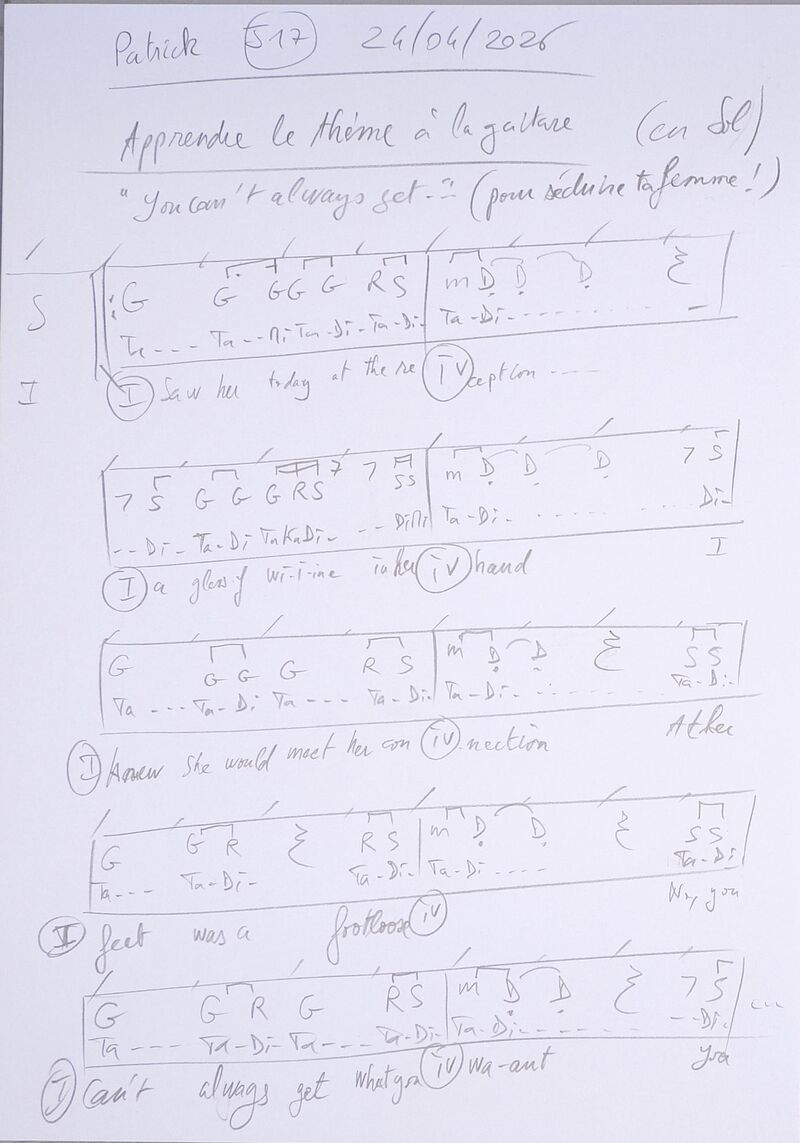 Patrick S17 24/04/2026
Apprendre le thème à la guitare (en Sol)
"You can't always get..." (pour séduire ta femme!)
S G G GG G R S m D D D
Ta - Di - Ta - Di - Ta - Di -
I I Saw her today at the re IV ception ----
7 S G G G R S 7 7 SS m D D D 7 S
-- Di - Ta - Di TaKaDi - -- DiMi Ta - Di - Di -
I a glass of wi-i-ine in her IV hand I
G G G G R S m D D S S
Ta --- Ta - Di Ta ---- Ta - Di - Ta - Di - Ta - Di -
I knew she would meet her con IV nection At her
G G R R S m D D S S
Ta --- Ta - Di - Ta - Di - Ta - Di - Ta - Di
II feet was a footloose IV you
G G R G R S m D D 7 S ...
Ta ---- Ta - Di - Ta --- Ta - Di - Ta - Di - -- Di -
I Can't always get what you IV wa-ant you